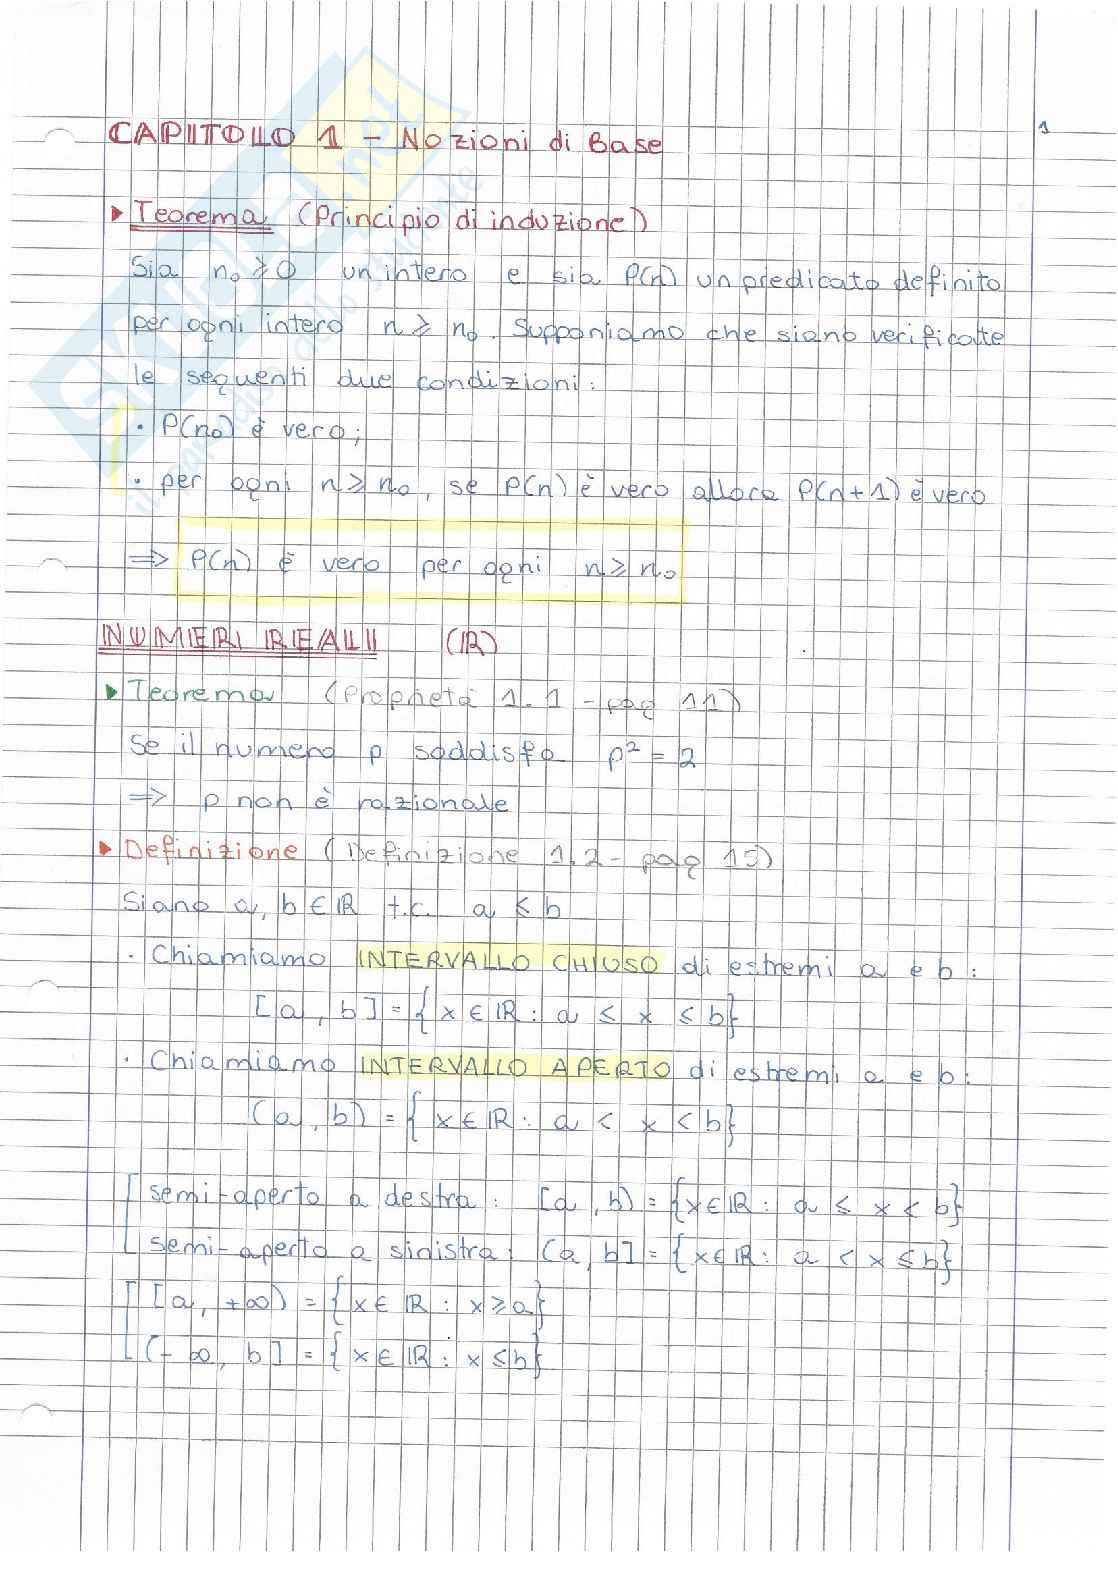 1
CAPITOLO 1 - Nozioni di Base
▸ Teorema (Principio di induzione)
Sia n₀ ≥ 0 un intero e sia P(n) un predicato definito
per ogni intero n ≥ n₀. Supponiamo che siano verificate
le seguenti due condizioni:
· P(n₀) è vero;
· per ogni n ≥ n₀, se P(n) è vero allora P(n+1) è vero
⇒ P(n) è vero per ogni n ≥ n₀
NUMERI REALI (ℝ)
▸ Teorema (Proprietà 1.1 - pag 11)
Se il numero p soddisfa p² = 2
⇒ p non è razionale
▸ Definizione (Definizione 1.2 - pag 15)
Siano a, b ∈ ℝ t.c. a ≤ b
· Chiamiamo INTERVALLO CHIUSO di estremi a e b:
[a, b] = {x ∈ ℝ : a ≤ x ≤ b}
· Chiamiamo INTERVALLO APERTO di estremi a e b:
(a, b) = {x ∈ ℝ : a < x < b}
semi-aperto a destra: [a, b) = {x ∈ ℝ : a ≤ x < b}
semi-aperto a sinistra: (a, b] = {x ∈ ℝ : a < x ≤ b}
[a, +∞) = {x ∈ ℝ : x ≥ a}
(-∞, b] = {x ∈ ℝ : x ≤ b}
SKUOLA.net
il portale dello studente